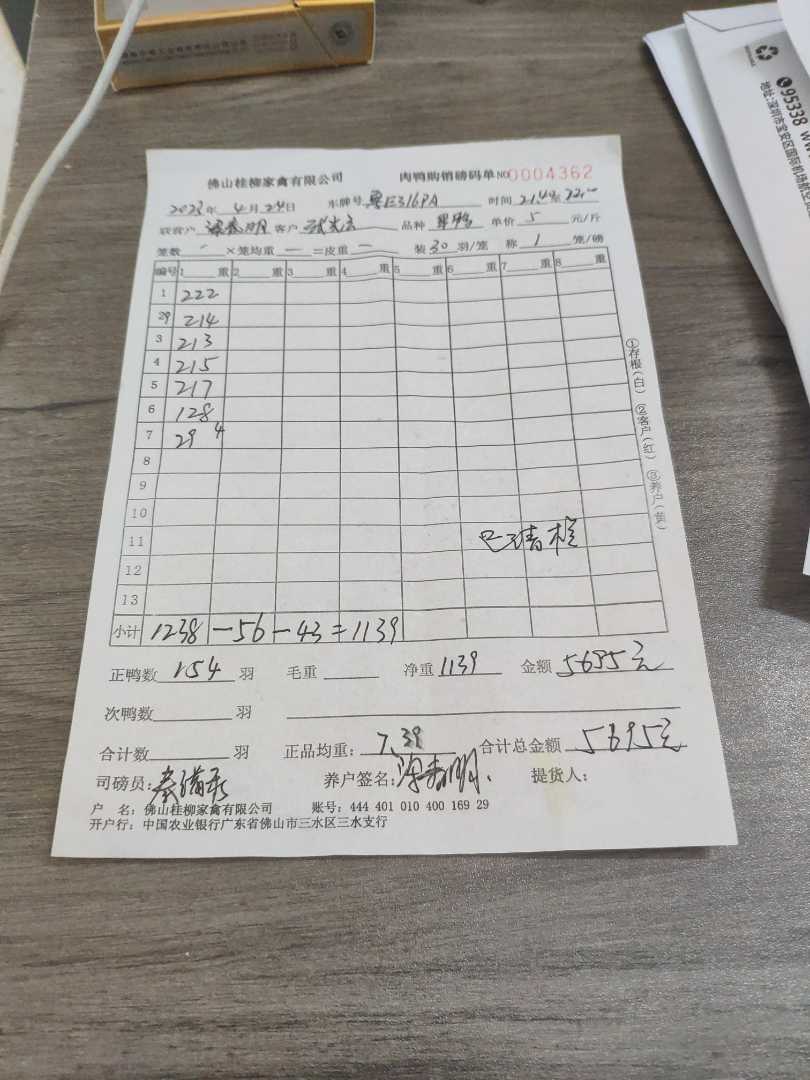 95338
地址:深圳市宝安区国际机场航
佛山桂柳家禽有限公司 肉鸭购销磅码单 NO 0004362
2023年 4月 24日 车牌号 粤E316PA 时间 21:40至22:00
联营户 客户 品种 单价 5 元/斤
笼数 ×笼均重 一 =皮重 一 装 30 羽/笼 称 1 笼/磅
编号 1 重 2 重 3 重 4 重 5 重 6 重 7 重 8 重
1 222
29 214
3 213
4 215
5 217
6 128
7 29 4
8
9
10
11 已清桩
12
13
小计 1238-56-43=1139
正鸭数 154 羽 毛重 净重 1139 金额 5695元
次鸭数 羽
合计数 羽 正品均重: 7.39 合计总金额 5695元
司磅员: 养户签名: 提货人:
户 名: 佛山桂柳家禽有限公司 账号: 444 401 010 400 169 29
开户行: 中国农业银行广东省佛山市三水区三水支行
①存根(白) ②客户(红) ③养户(黄)